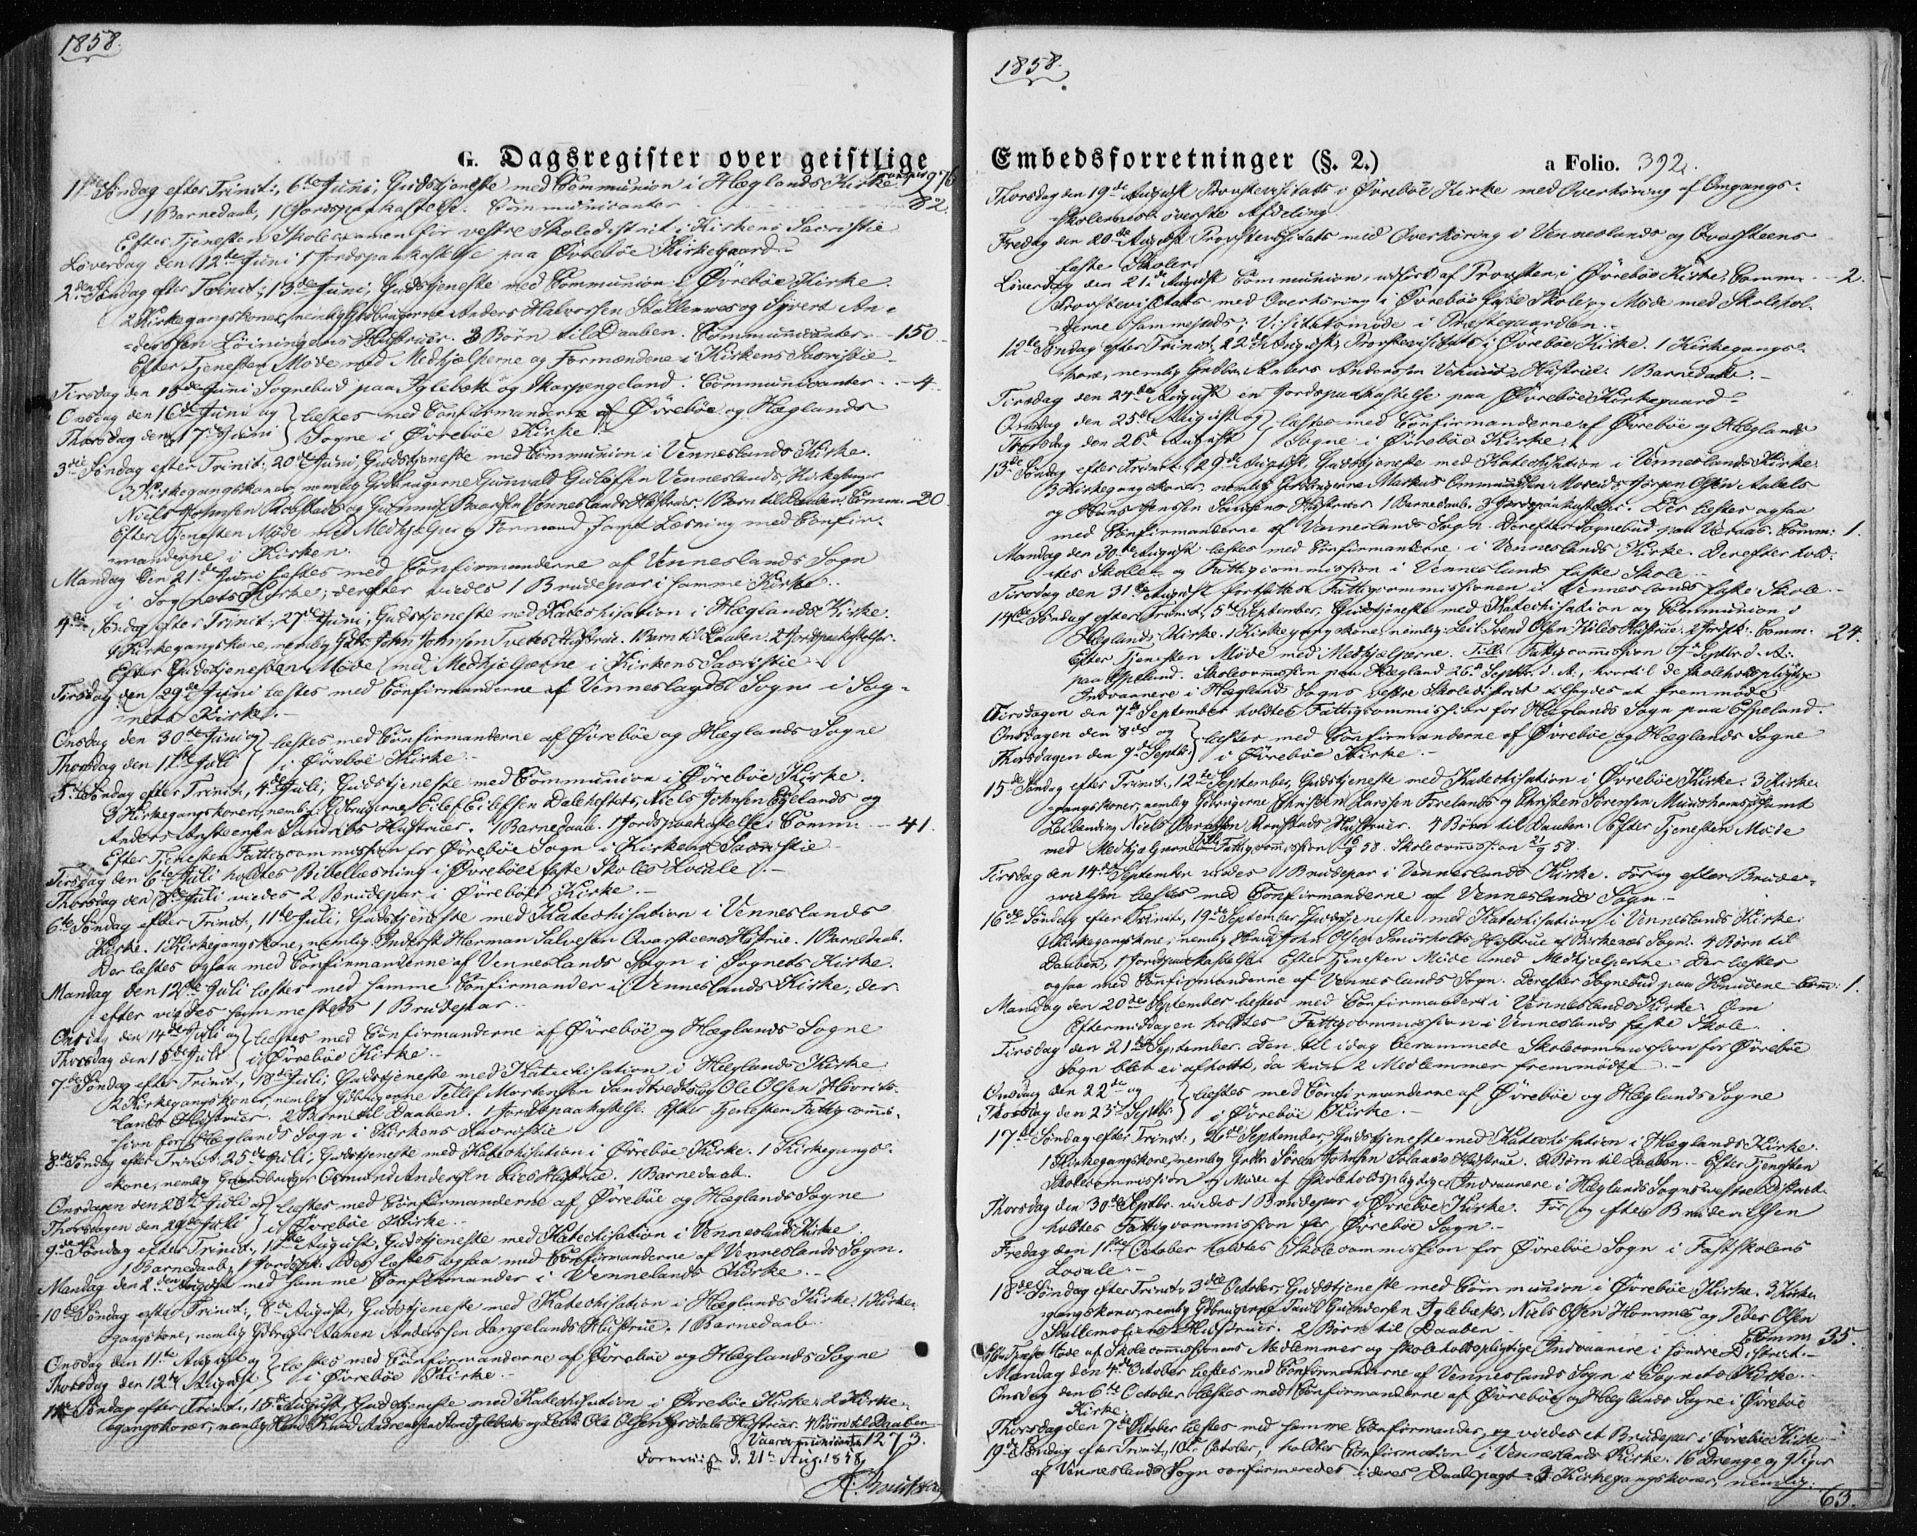 1858.
G. Dagsregister over geistlige
Transport 976
1ste Søndag efter Trinit:, 6te Juni; Gudstjeneste med Communion i Hæglands Kirke.
1 Barnedaab, 1 Jordspaakastelse. Communicanter 82.
Efter Tjenesten Skoleexamen for vestre Skoledistrict i Kirkens Sacristie
Løverdag den 12te Juni 1 Jordspaakastelse paa Øvrebøe Kirkegaard.
2den Søndag efter Trinit:, 13de Juni; Gudstjeneste med Communion i Øvrebøe Kirke.
2 Kirkegangskoner, nemlig Gdbrugerne Anders Halvorsen Skallemoes og Syvert An-
dersen Løiningens Hustruer. 3 Børn til Daaben. Communicanter 150.
Efter Tjenesten Møde med Medhjelperne og Formændene i Kirkens Sacristie.
Tirsdag den 15de Juni Sognebud paa Iglebæk og Skarpengeland. Communicanter 4.
Onsdag den 16de Juni og
Thorsdag den 17de Juni } læstes med Confirmanderne af Øvrebøe og Hæglands
Sogne i Øvrebøe Kirke.
3die Søndag efter Trinit:, 20de Juni; Gudstjeneste med Communion i Venneslands Kirke.
3 Kirkegangskoner, nemlig Gdbrugerne Gunvald Vennesland,
Niels Johnsen og Gunnuf Hustruer. 1 Barn til Daaben. Comm: 20.
Efter Tjenesten Møde med Medhjelper og Formand samt Læsning med Confir-
manderne i Kirken.
Mandag den 21de Juni læstes med Confirmanderne af Venneslands Sogn
i Sognets Kirke; derefter viedes 1 Brudepar i samme Kirke.
4de Søndag efter Trinit:, 27de Juni; Gudstjeneste med Katechisation i Hæglands Kirke.
1 Kirkegangskone, nemlig John Johnsen Tveits Hustrue. 1 Barn til Daaben. 2 Jordspaakastelser.
Efter Gudstjenesten Møde med Medhjelperne i Kirkens Sacristie
Tirsdag den 29de Juni læstes med Confirmanderne af Venneslands Sogn i Sog-
nets Kirke.
Onsdag den 30de Juni og
Thorsdag den 1ste Juli } læstes med Confirmanderne af Øvrebøe og Hæglands Sogne
i Øvrebøe Kirke.
5te Søndag efter Trinit:, 4de Juli; Gudstjeneste med Communion i Øvrebøe Kirke.
3 Kirkegangskoner, nemlig Gdbrugerne Eilef Eilefsen Dalekeltets, Niels Johnsen Eielands og
Anders Hustruer. 1 Barnedaab. 1 Jordspaakastelse. Comm: 41.
Efter Tjenesten Fattigcommission for Øvrebøe Sogn i Kirkens Sacristie
Tirsdag den 6te Juli holdtes Bibellæsning i Øvrebøe faste Skoles Locale.
Thorsdag den 8de Juli viedes 2 Brudepar i Øvrebøe Kirke.
6te Søndag efter Trinit:, 11te Juli; Gudstjeneste med Katechisation i Venneslands
Kirke. 1 Kirkegangskone, nemlig Inderst Herman Salvesen Qvarsteens Hustrue. 1 Barnedaab.
Der læstes ogsaa med Confirmanderne af Venneslands Sogn i Sognets Kirke.
Mandag den 12te Juli læstes med samme Confirmander i Venneslands Kirke; der-
efter viedes sammesteds 1 Brudepar.
Onsdag den 14de Juli og
Thorsdag den 15de Juli } læstes med Confirmanderne af Øvrebøe og Hæglands Sogne
i Øvrebøe Kirke.
7de Søndag efter Trinit:, 18de Juli; Gudstjeneste med Katechisation i Hæglands Kirke
2 Kirkegangskoner, nemlig Gdbrugerne Tellef Mortensen og Ole Olsen
lands Hustruer. 2 Børn til Daaben. 1 Jordspaakastelse. Efter Tjenesten Fattigcommis-
sion for Hæglands Sogn i Kirkens Sacristie
8de Søndag efter Trinit:, 25de Juli; Gudstjeneste med Katechisation i Øvrebøe Kirke. 1 Kirkegangs-
kone, nemlig Gaardbruger Osmund Andersen Hustrue. 1 Barnedaab.
Onsdagen den 28de Juli og
Thorsdagen den 29de Juli } læstes med Confirmanderne af Øvrebøe og Hæglands Sogne
i Øvrebøe Kirke.
9de Søndag efter Trinit:, 1ste August; Gudstjeneste med Katechisation i Venneslands Kirke
1 Barnedaab, 1 Jordspk. Der læstes ogsaa med Confirmanderne af Venneslands Sogn.
Mandag den 2den August med samme Confirmander i Venneslands Kirke.
10de Søndag efter Trinit:, 8de August, Gudstjeneste med Katechisation i Hæglands Kirke. 1 Kirke-
gangskone, nemlig Gdbruger Aanen Andersen Langelands Hustrue. 1 Barnedaab.
Onsdag den 11te August og
Thorsdag den 12te August } læstes med Confirmanderne af Øvrebøe og Hæglands Sogne
i Øvrebøe Kirke.
11te Søndag efter Trinit:, 15de August, Gudstjeneste med Katechisation i Øvrebøe Kirke. 2 Kirke-
gangskoner, nemlig Iglebæks og Ole Olsen Hustruer. 4 Børn til Daaben
1273.
d. 21de Aug. 1858,

1858.
Embedsforretninger (§. 2.)
a Folio. 392.
Thorsdag den 19de August Provstevisitats i Øvrebøe Kirke med Overhøring af Omgangs-
skolernes øverste Afdeling.
Fredag den 20de August Provstevisitats med Overhøring i Venneslands og Qvarsteens
faste Skoler.
Løverdag den 21de August Communion, udført af Provsten, i Øvrebøe Kirke. Comm: 2.
Provstevisitats med Overhøring i Øvrebøe faste Skole og Møde med Skolehol-
derne sammesteds; Visitatsmøde i Præstegaarden.
12te Søndag efter Trinit:, 22de August, Provstevisitats i Øvrebøe Kirke. 1 Kirkegangs-
kone, nemlig Gdbr. Anders Andersen Hustrue. 1 Barnedaab.
Tirsdag den 24de August en Jordspaakastelse paa Øvrebøe Kirkegaard.
Onsdag den 25de August og
Thorsdag den 26de August } læstes med Confirmanderne af Øvrebøe og Hæglands
Sogne i Øvrebøe Kirke.
13de Søndag efter Trinit:, 29de August, Gudstjeneste med Katechisation i Venneslands Kirke.
3 Kirkegangskoner, nemlig Gdbrugerne Markus Omundsen Moseids, Jørgen Olsen Aabels
og Hans Jensen Hustruer. 1 Barnedaab. Jordspaakastelser. Der læstes ogsaa
med Confirmanderne af Venneslands Sogn. Derefter Sognebud paa Comm: 1.
Mandag den 30de August læstes med Confirmanderne i Venneslands Kirke. Derefter hold-
tes Skole- og Fattigcommission i Venneslands faste Skole.
Tirsdag den 31te August fortsattes Fattigcommissionen i Venneslands faste Skole.
14de Søndag efter Trinit:, 5te September, Gudstjeneste med Katechisation og Communion i
Hæglands Kirke. 1 Kirkegangskone, nemlig: Leil. Svend Olsen Kiles Hustrue. 2 Jordspk. Comm: 24.
Efter Tjenesten Møde med Medhjelperne. Fattigcommission 7de Septbr. d. A.
paa Espeland. Skolecommission paa Hægland 25de Septbr. d. A., hvortil de skoleholdspligtige
Indvaanere i Hæglands Sogns vestre Skoledistrict tilsagdes at fremmøde
Tirsdagen den 7de September holdtes Fattigcommission for Hæglands Sogn paa Espeland.
Onsdagen den 8de og
Thorsdagen den 9de Septbr. } læstes med Confirmanderne af Øvrebøe og Hæglands Sogne
i Øvrebøe Kirke.
15de Søndag efter Trinit:, 12te September, Gudstjeneste med Katechisation i Øvrebøe Kirke. 3 Kirke-
gangskoner, nemlig Gdbrugerne Christen Larsen Førelands og Christen Sørensen samt
Leilænding Niels Hustruer. 4 Børn til Daaben. Efter Tjenesten Møde
med Medhjelperne. Fattigcommission 58. Skolecommission 58.
Tirsdag den 14de September viedes 1 Brudepar i Venneslands Kirke. Før og efter Brude-
vielsen læstes med Confirmanderne af Venneslands Sogn.
16de Søndag efter Trinit:, 19de September, Gudstjeneste med Katechisation i Venneslands Kirke.
1 Kirkegangskone, nemlig John Olsen Smörholts Hustrue af Birkenæs Sogn. 4 Børn til
Daaben, 1 Jordspaakastelse. Efter Tjenesten Møde med Medhjelperne. Der læstes
ogsaa med Confirmanderne af Venneslands Sogn. Derefter Sognebud paa Honnedene Com: 1.
Mandag den 20de September læstes med Confirmander i Venneslands Kirke. Om
Eftermiddagen holdtes Fattigcommission i Venneslands faste Skole.
Tirsdag den 21de September. Den til idag berammede Skolecommission for Øvrebøe
Sogn blev ei afholdt, da kun 2 Medlemmer fremmødte.
Onsdag den 22de og
Thorsdag den 23de Septbr. } læstes med Confirmanderne af Øvrebøe og Hæglands Sogne
i Øvrebøe Kirke.
17de Søndag efter Trinit:, 26de September, Gudstjeneste med Katechisation i Hæglands Kirke.
1 Kirkegangskone, nemlig Gdbr. Søren Johnsen Solaas's Hustrue. 2 Børn til Daaben. Efter Tjenesten
Skolecommission og Møde af skoleholdspligtige Indvaanere i Hæglands Sogns vestre District.
Thorsdag den 30de Septbr. viedes 1 Brudepar i Øvrebøe Kirke. Før og efter Brudevielsen
holdtes Fattigcommission for Øvrebøe Sogn.
Fredag den 1ste October holdtes Skolecommission for Øvrebøe Sogn i Fastskolens
Locale.
18de Søndag efter Trinit:, 3die October, Gudstjeneste med Communion i Øvrebøe Kirke. 3 Kirke-
gangskoner, nemlig Gdbrugerne Gundersen Iglebæks, Niels Olsen Hommes og Peder Olsen
Skallemoens Hustruer. 2 Børn til Daaben.
Comm: 35.
Efter Tjenesten Møde af Skolecommissionens Medlemmer og skoleholdspligtige Indvaanere i søndre District.
Mandag den 4de October læstes med Confirmanderne af Venneslands Sogn i Sognets Kirke.
Onsdag den 6te October læstes med Confirmanderne af Øvrebøe og Hæglands Sogne i Øvrebøe
Kirke.
Thorsdag den 7de October læstes med samme Confirmander, og viedes et Brudepar i Øvrebøe Kirke.
19de Søndag efter Trinit:, 10de October, holdtes Confirmation i Venneslands Kirke. 16 Drenge og 9 Piger
af Venneslands Sogn confirmeredes i deres Daabspagt. Kirkegangskoner, nemlig:
63.